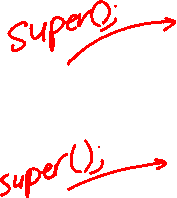 super();
super();